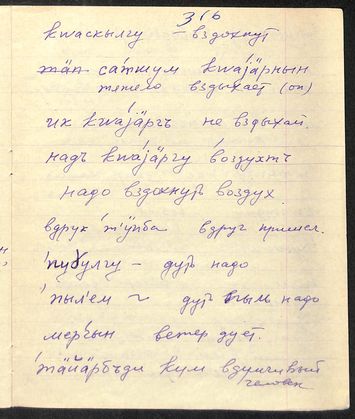 316
кwаскылгу – вздохнут
тӓп са́тшум кwаjӓрнын
тяжело вздыхает (он)
ик кwаjӓргъ не вздыхай.
надъ кwаjӓргу воздухтъ
надо вздохнуть воздух.
вдрук т'ӱпба вдруг пришел.
'пуɣулгу – дуть надо
'пыл'ем ~ дуть пыль надо
мерчын ветер дует.
кум вдумчивый
человек